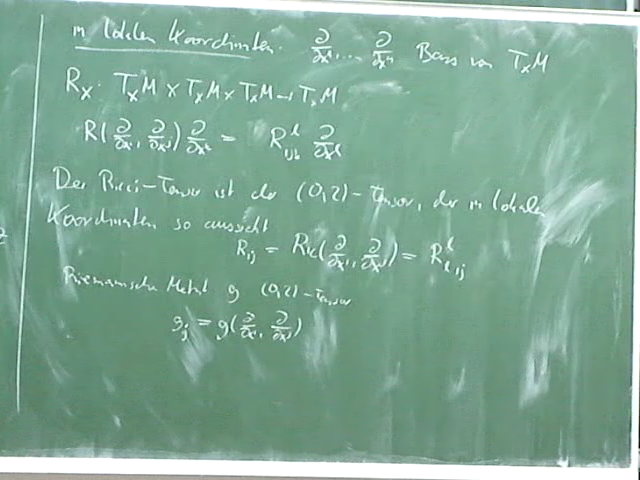 in lokalen Koordinaten. ∂/∂x¹, ... ∂/∂xⁿ Basis von TₓM
Rₓ : TₓM × TₓM × TₓM → TₓM
R(∂/∂xⁱ, ∂/∂xʲ) ∂/∂xᵏ = R^l_{ijk} ∂/∂x^l
Der Ricci-Tensor ist der (0,2)-Tensor, der in lokalen
Koordinaten so aussieht
R_{ij} = Ric(∂/∂xⁱ, ∂/∂xʲ) = R^l_{lij}
Riemannsche Metrik g (0,2)-Tensor
g_{ij} = g(∂/∂xⁱ, ∂/∂xʲ)